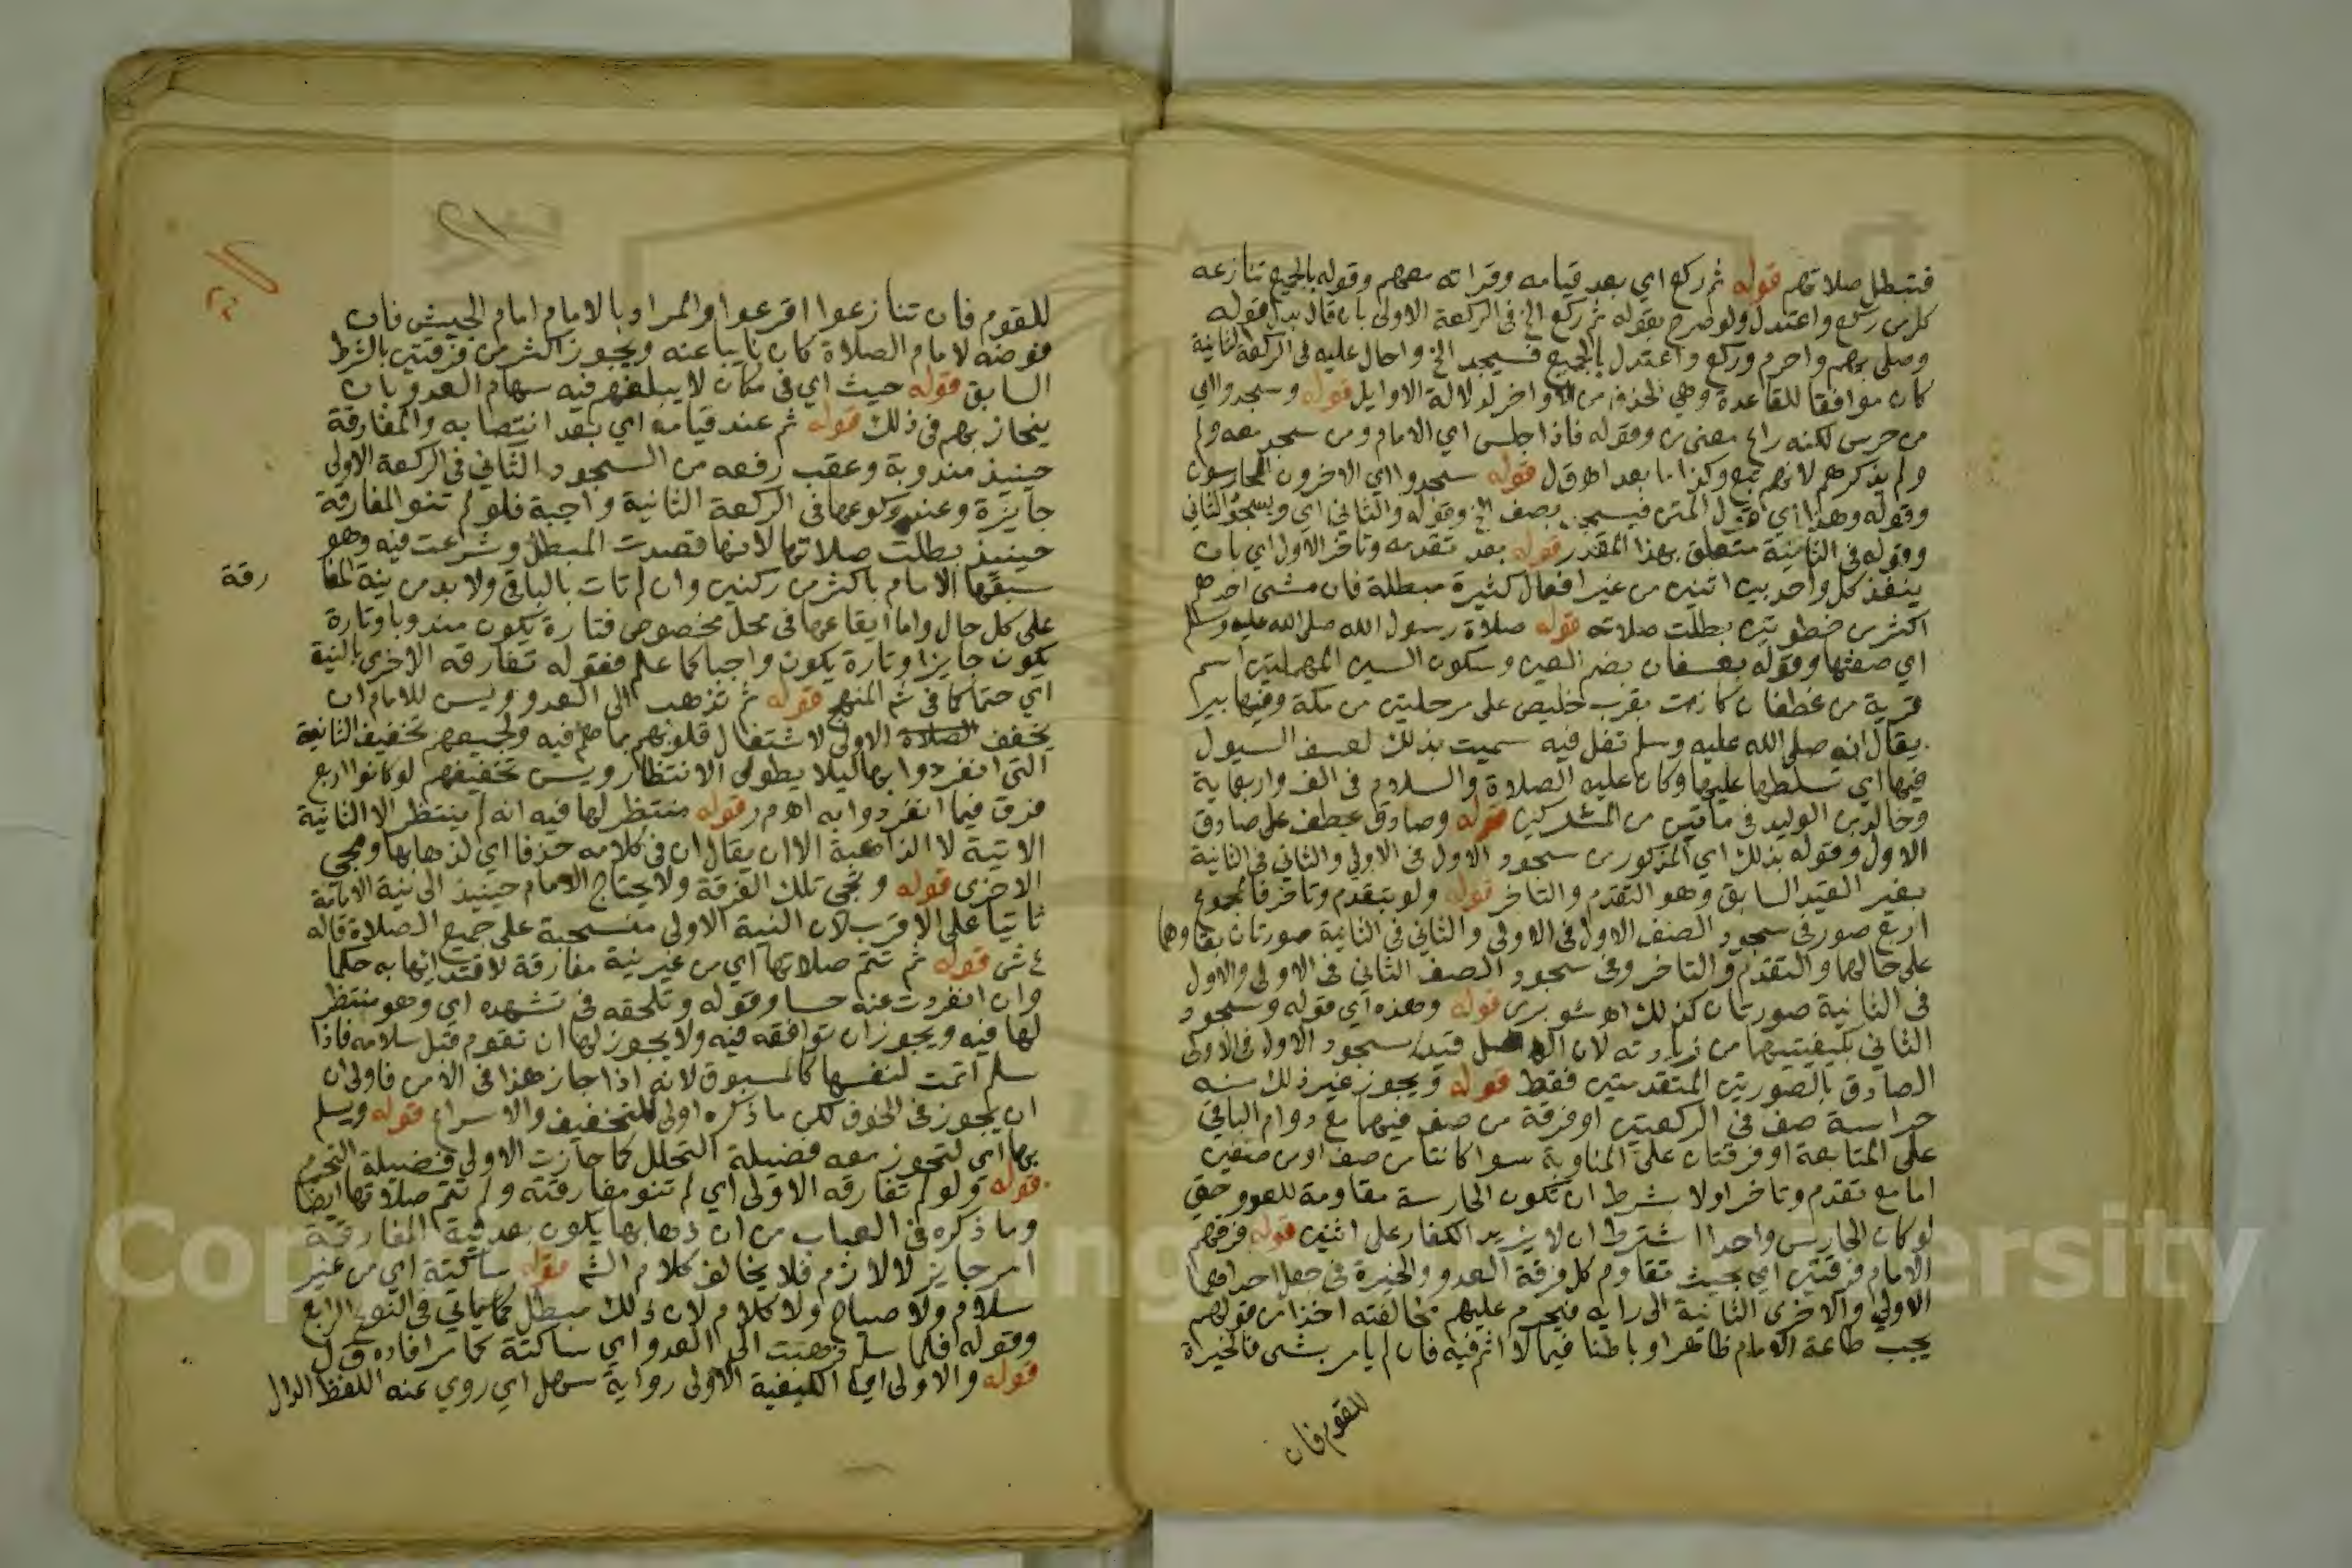 فتبطل صلاتهم قوله ثم ركع اي بعد قيامه وقراته معهم وقوله بالجميع تنازعه
كل من ركع واعتدل ولو صرح بقوله ثم ركع الخ في الركعة الاولى بان قال بدل قوله
وصلى بهم واحرم وركع واعتدل بالجميع فسيجد الخ واحال عليه في الركعة الثانية
كان موافقا للقاعدة وهي الحذف من الاواخر لدلالة الاوايل قوله وسجد واي
من حرس لكنه راع معنى من وقوله فاذا جلس اي الامام ومن سجد معه ولم
ولم يذكرهم لانهم تبع وكذا ما بعد اهـ ق ل قوله سجدوا اي الاخرون الحارسون
وقوله وهذا اي قول المتن فيسجد بصف الخ وقوله والثاني اي ويسجد الثاني
وقوله في الثانية متعلق بهذا المقدر قوله بعد تقدمه وتاخر الاول اي بان
ينفذ كل واحد بين اثنين من غير افعال كثيرة مبطلة فان مشى احدهم
اكثر من خطوتين بطلت صلاته قوله صلاة رسول الله صلى الله عليه وسلم
اي صفتها وقوله بعسفان بضم العين وسكون السين المهملتين اسم
قرية من غطفان كانت بقرب خليص على مرحلتين من مكة وفيها بير
يقال انه صلى الله عليه وسلم تفل فيه سميت بذلك لعسف السيول
فيها اي تسلطها عليها وكان عليه الصلاة والسلام في الف واربعماية
وخالد بن الوليد في ماتين من المشركين قوله وصادق عطف على صادق
الاول وقوله بذلك اي المذكور من سجود الاول في الاولى والثاني في الثانية
بغير القيد السابق وهو التقدم والتاخر قوله ولو بتقدم وتاخر فالمجموع
اربع صور في سجود الصف الاول في الاولى والثاني في الثانية صورتان بقاوها
على حالها والتقدم والتاخر وفي سجود الصف الثاني في الاولى والاول
في الثانية صورتان كذلك اهـ شوبري قوله وهذه اي قوله وسجود
الثاني بكيفيتيها من زيادته لان الاصل قيد سجود الاول في الاولى
الصادق بالصورتين المتقدمتين فقط قوله ويجوز غير ذلك منه
حراسة صف في الركعتين او فرقة من صف فيهما مع دوام الباقي
على المتابعة او فرقتان على المناوبة سوا كانتا من صف او من صفين
اما مع تقدم وتاخر او لا بشرط ان تكون الحارسة مقاومة للعدو حتى
لو كان الحارس واحدا اشترط ان لا يزيد الكفار على اثنين قوله فرقهم
الامام فرقتين اي بحيث تقاوم كل فرقة العدو والخيرة في جعل احداهما
الاولى والاخرى الثانية الى رايه فيحرم عليهم مخالفته اخذا من قولهم
يجب طاعة الامام ظاهرا وباطنا فيما لا اثم فيه فان لم يامر بشى فالخيرة
للقوم فان
للقوم فان تنازعوا اقرعوا والمراد بالامام امام الجيش فان
فوضه لامام الصلاة كان نايبا عنه ويجوز اكثر من فرقتين بالشرط
السابق قوله حيث اي في مكان لا يبلغهم فيه سهام العدو بان
ينحاز بهم في ذلك قوله ثم عند قيامه اي بعد انتصابه والمفارقة
حينيذ مندوبة وعقب رفعه من السجود الثاني في الركعة الاولى
جايزة وعند ركوعها في الركعة الثانية واجبة فلو لم تنو المفارقة
حينيذ بطلت صلاتها لانها قصدت المبطل وشرعت فيه وهو
سبقها الامام باكثر من ركنين وان لم تات بالباقي ولا بد من نية المفا
رقة
على كل حال واما ايقاعها في محل مخصوص فتارة يكون مندوبا وتارة
يكون جايزا وتارة يكون واجبا كما علم فقوله تفارقه الاخرى بالنية
اي حتما كما في ثم المنهج قوله ثم تذهب الى العدو ويسن للامام ان
يخفف الصلاة الاولى لاشتغال قلوبهم بما هم فيه ولجميعهم تخفيف الثانية
التي انفردوا بها ليلا يطول الانتظار ويسن تخفيفهم لو كانوا اربع
فرق فيما انفردوا به اهـ م ر قوله منتظر لها فيه انه لم ينتظر الا الثانية
الاتية لا الذاهبة الا ان يقال ان في كلامه حذفا اي لذهابها ومجي
الاخرى قوله وتجى تلك الفرقة ولا يحتاج الامام حينيذ الى نية الامامة
ثانيا على الاقرب لان النية الاولى منسحبة على جميع الصلاة قاله
ع ش قوله ثم تتم صلاتها اي من غير نية مفارقة لاقتدايها به حكما
وان انفردت عنه حسا وقوله وتلحقه في تشهده اي وهو منتظر
لها فيه ويجوز ان توافقه فيه ولا يجوز لها ان تقوم قبل سلامه فاذا
سلم اتمت لنفسها كالمسبوق لانه اذا جاز هذا في الامن فاولى ان
ان يجوز في الخوف لكن ما ذكره اولى للتخفيف والاسراع قوله ويسلم
بها اي لتحوز معه فضيلة التحلل كما حازت الاولى فضيلة التحرم
قوله ولو لم تفارقه الاولى اي لم تنو مفارقته ولم تتم صلاتها ايضا
وما ذكره في العباب من ان ذهابها يكون بعد نية المفارقة
امر جايز لا لازم فلا يخالف كلام الشم قوله ساكتة اي من غير
سلام ولا صياح ولا كلام لان ذلك مبطل كما ياتي في النوع الرابع
وقوله فلما سلم ذهبت الى العدو اي ساكتة كما مر افاده ق ل
قوله والاولى اي الكيفية الاولى رواية سهل اي روي عنه اللفظ الدال